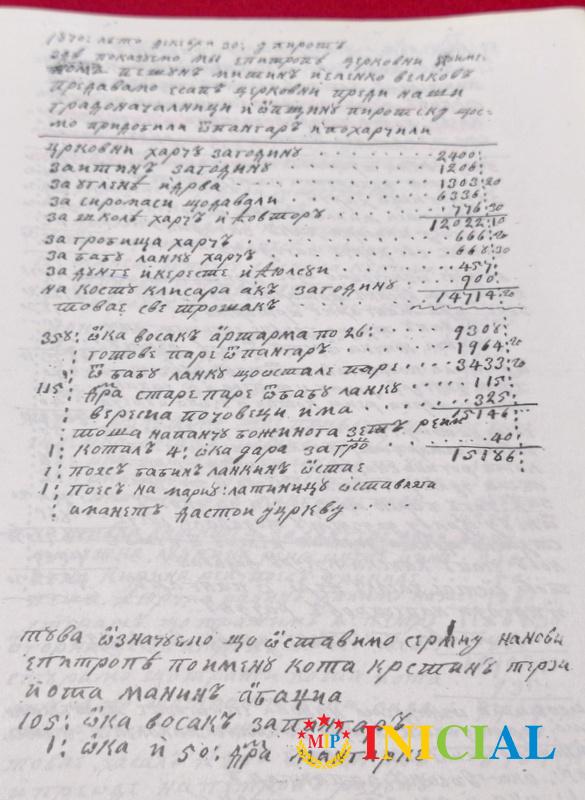 1840: лѣто декевра 30: у пиротъ
зде показуемо мы епитропѣ церковни
пешунъ митинъ и ценко велковъ
предавамо есапъ церковни преди наши
градоначалници и ѡпщину пиротску що с-
мо придобили ѿ пангаръ и похарчили
црковни харчъ за годину ........ 2400:
за итинъ за годину ........ 1206:
за углѣнь и дрва ........ 1303:20
за сиромаси що давали ........ 6336:
за школѣ харчъ и автору ........ 776:30
12022:10
за гробища харчъ ........ 666:20
за бабу ланку харчъ ........ 668:30
за дунге и кересте и аюлсуци ........ 457:
на косту клисара акъ за годину ........ 900:
товае све трошакъ ........ 14714:20
358: ѡка восакъ артарма по 26: ........ 9308:
готове паре ѿ пангаръ ........ 1964:20
ѿ бабу ланку що остале паре ........ 3433:20
115: гра старе паре ѿ бабу ланку ........ 115:
вересиа по човеци има ........ 325:
15146:
тоша на панчу божинота зетъ
1: коталъ 4: ѡка дара за гро ........ 40:
1: поесъ бабин ланкинъ ѡстае 15186:
1: поесъ на марију латиницу ѡставлята
аманетъ да стои у цркву ....
тува ѡзначуемо що ѡставимо сермину на нови
епитропѣ по имену кота крстинъ терзи
и ѡта манинъ абаџиа
105: ѡка восакъ за пангаръ
1: ѡка и 50: дра
MP INICIAL